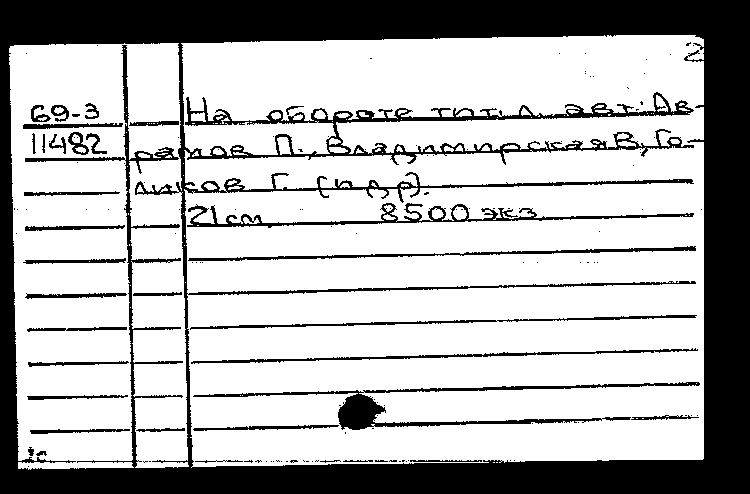 2
69-3 На обороте тит. л. авт.: Ав-
11482 рамов П., Владимирская В., Го-
ликов Г. (и др).
21 см 8500 экз